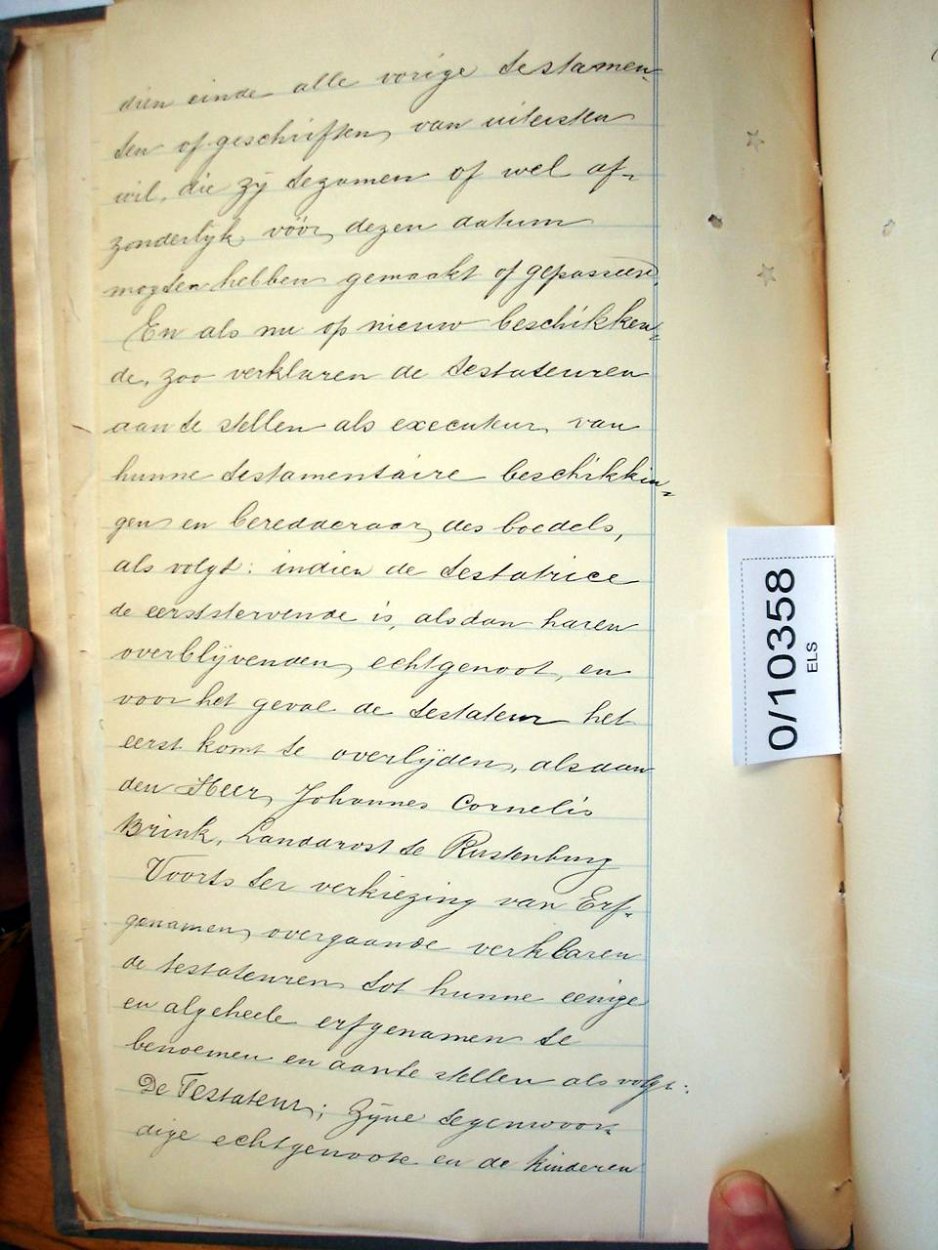 dien einde alle vorige testamen-
ten of geschriften van uitersten
wil, die zij tezamen of wel af-
zonderlijk vóór dezen datum
mogten hebben gemaakt of gepasseerd.
En als nu op nieuw beschikken-
de, zoo verklaren de testateuren
aan te stellen als executeur van
hunne testamentaire beschikkin-
gen en beredderaar des boedels,
als volgt: indien de testatrice
de eerststervende is, alsdan haren
overblijvenden echtgenoot, en
voor het geval de testateur het
eerst komt te overlijden, alsdan
den Heer Johannes Cornelis
Brink, Landdrost te Rustenburg
Voorts ter verkiezing van Erf-
genamen overgaande verklaren
de testateuren tot hunne eenige
en algeheele erfgenamen te
benoemen en aante stellen als volgt:
De Testateur; zijne tegenwoor-
dige echtgenoote en de kinderen
0/10358
ELS